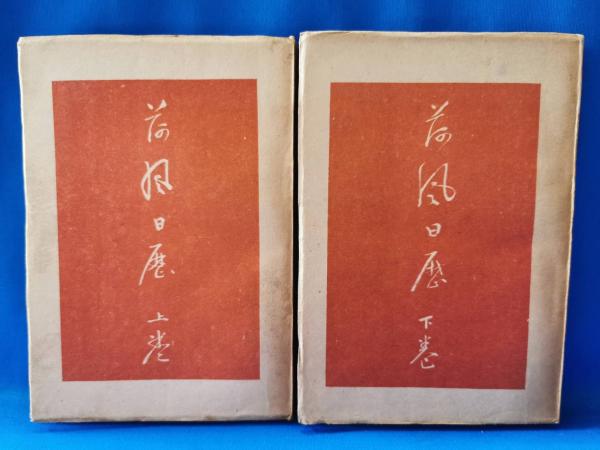 荷風日歴
上巻
荷風日歴
下巻